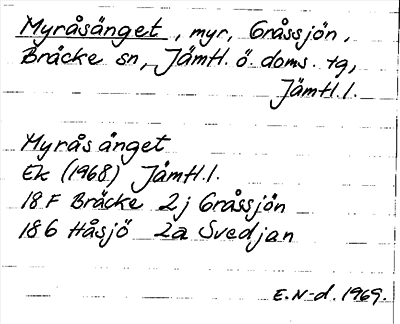 Myråsänget, myr, Gråssjön,
Bräcke sn, Jämtl. ö. doms. tg,
Jämtl. l.
Myråsänget
Ek (1968) Jämtl. l.
18 F Bräcke 2j Gråssjön
18 G Håsjö 2a Svedjan
E. N-d. 1969.